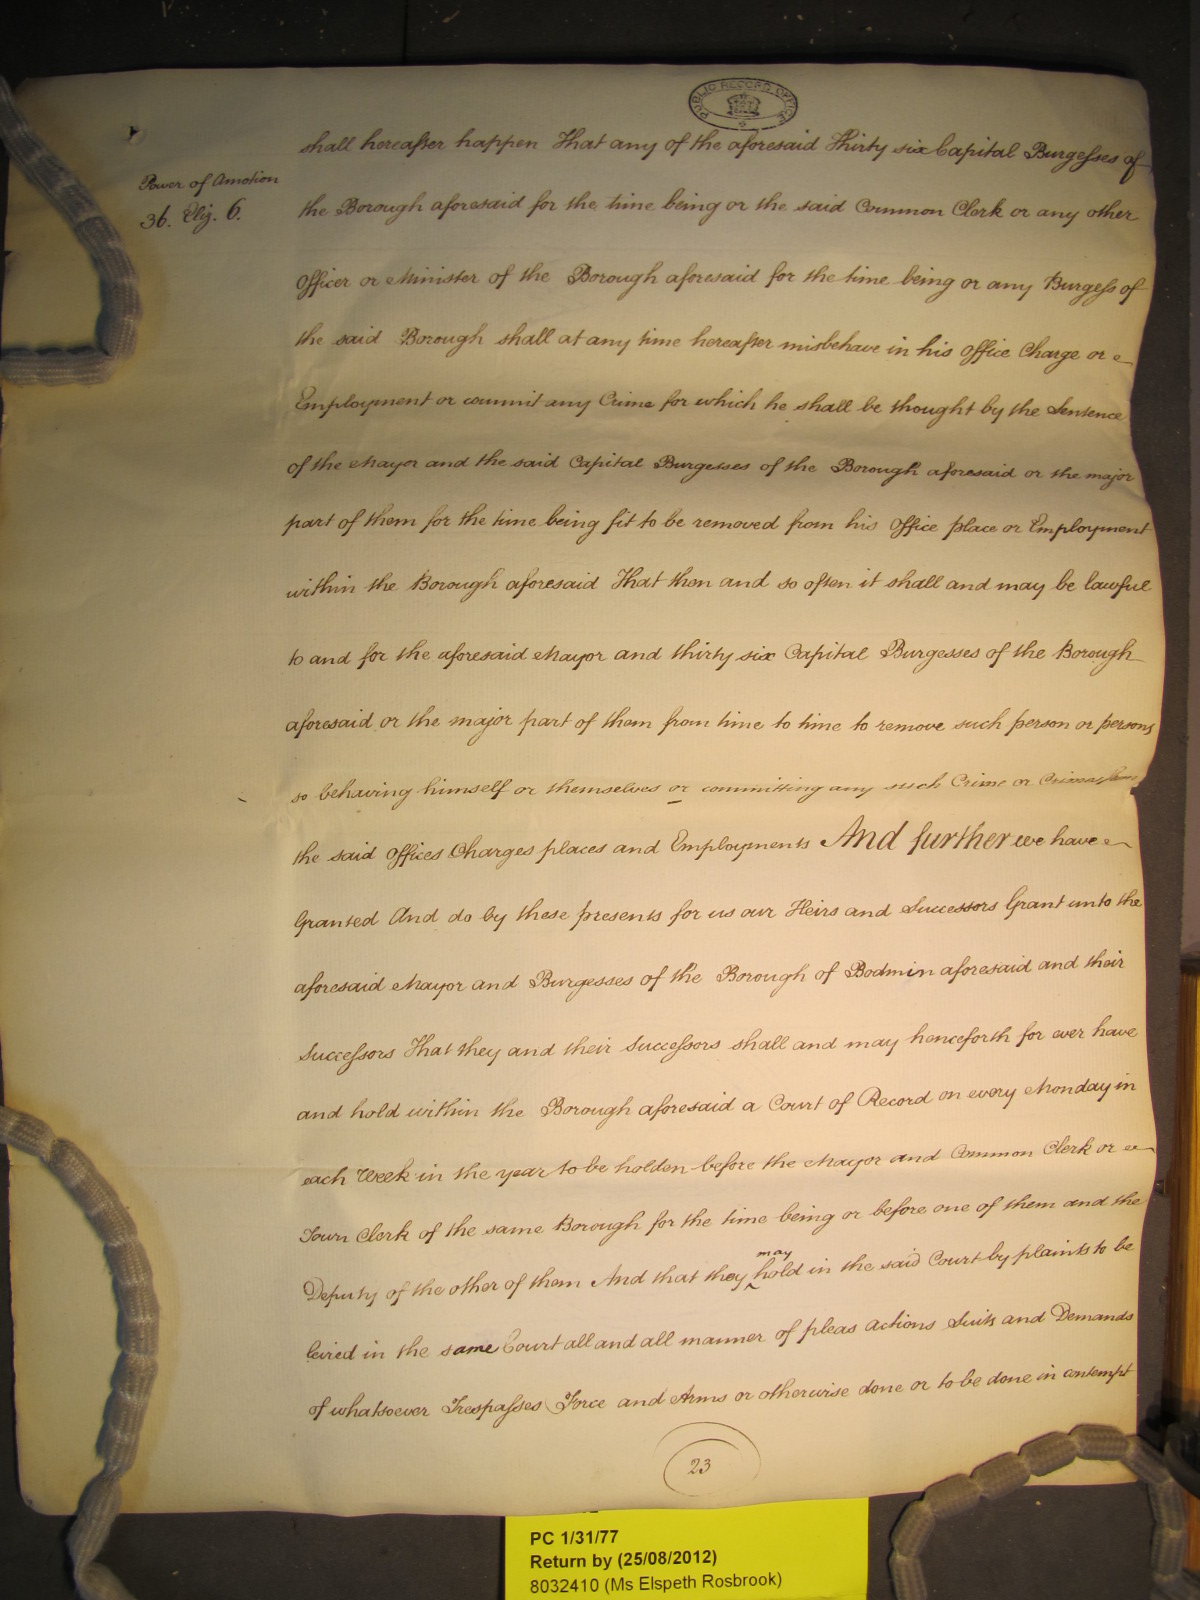 PUBLIC RECORD OFFICE
shall hereafter happen That any of the aforesaid Thirty six Capital Burgesses of
Power of Amotion
36. Eliz. 6.
the Borough aforesaid for the time being or the said Common Clerk or any other
Officer or Minister of the Borough aforesaid for the time being or any Burgess of
the said Borough shall at any time hereafter misbehave in his Office Charge or
Employment or commit any Crime for which he shall be thought by the Sentence
of the Mayor and the said Capital Burgesses of the Borough aforesaid or the major
part of them for the time being fit to be removed from his Office place or Employment
within the Borough aforesaid That then and so often it shall and may be lawful
to and for the aforesaid Mayor and thirty six Capital Burgesses of the Borough
aforesaid or the major part of them from time to time to remove such person or persons
so behaving himself or themselves or committing any such Crime or Crimes from
the said Offices Charges places and Employments And further we have
Granted And do by these presents for us our Heirs and Successors Grant unto the
aforesaid Mayor and Burgesses of the Borough of Bodmin aforesaid and their
Successors That they and their Successors shall and may henceforth for ever have
and hold within the Borough aforesaid a Court of Record on every Monday in
each Week in the year to be holden before the Mayor and Common Clerk or
Town Clerk of the same Borough for the time being or before one of them and the
Deputy of the other of them And that they may hold in the said Court by plaints to be
levied in the same Court all and all manner of pleas actions Suits and Demands
of whatsoever Trespasses Force and Arms or otherwise done or to be done in contempt
23
PC 1/31/77
Return by (25/08/2012)
8032410 (Ms Elspeth Rosbrook)